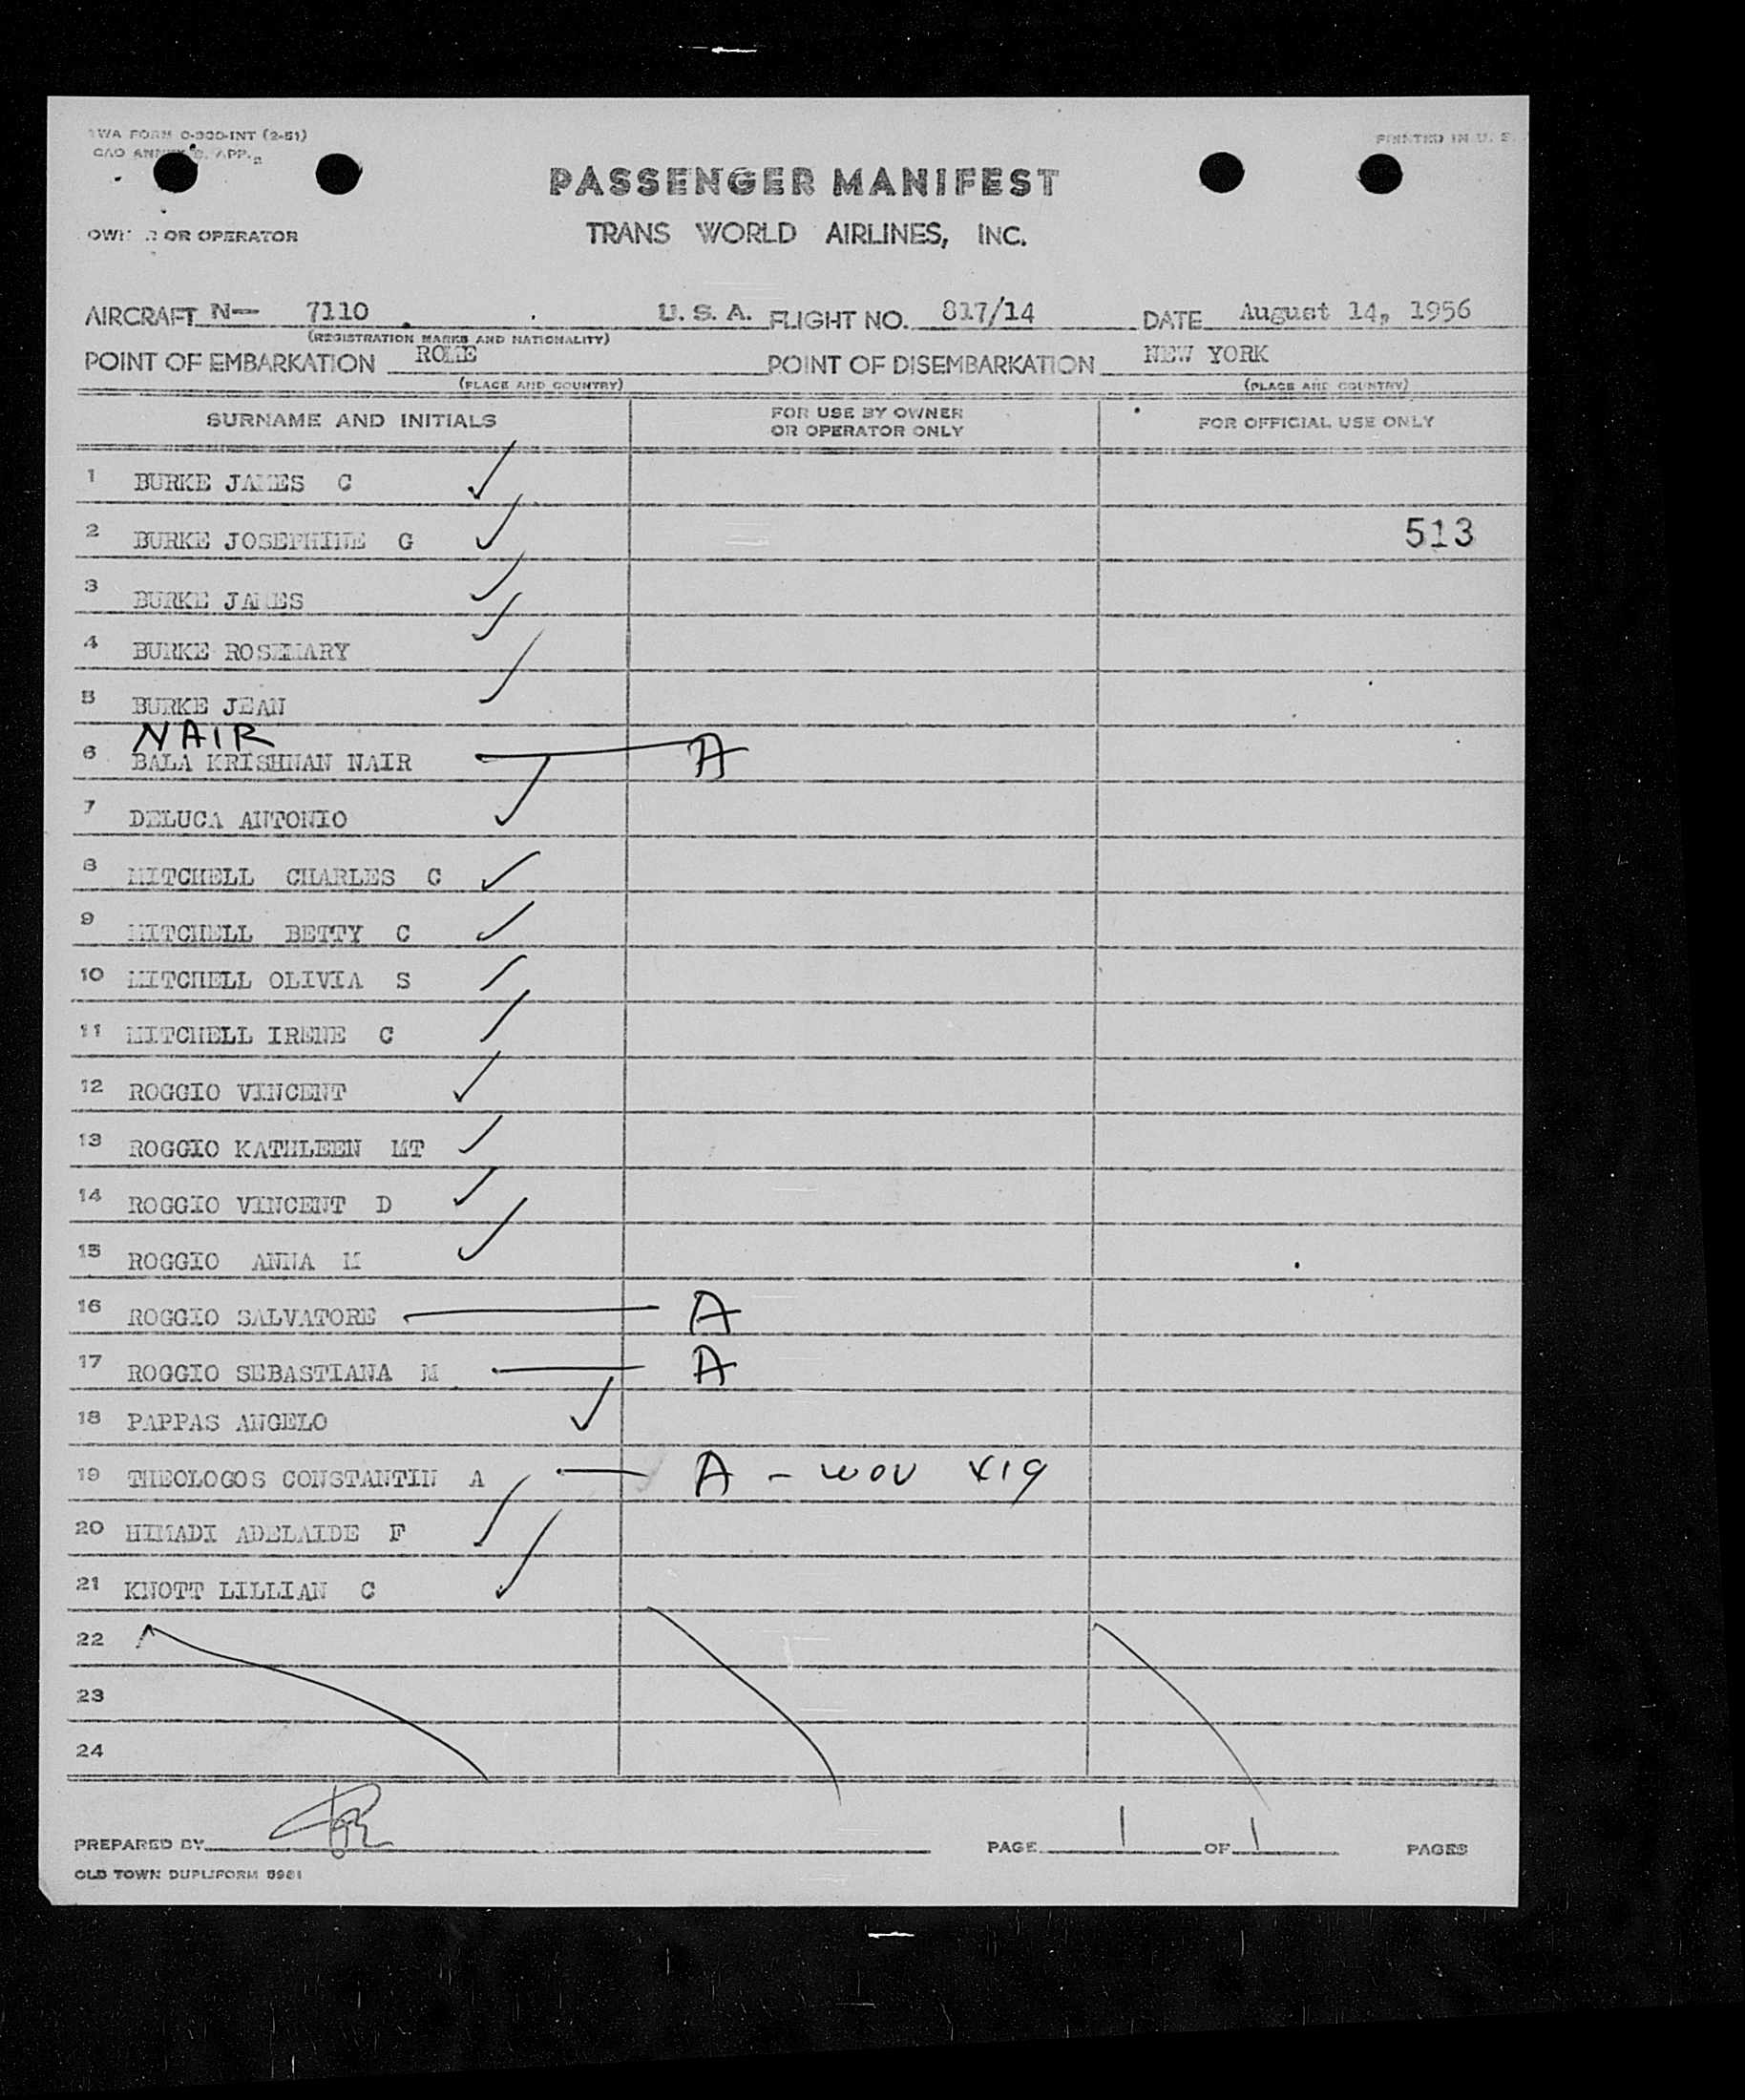 TWA FORM 0-300-INT (2-51)
PRINTED IN U. S.
PASSENGER MANIFEST
OR OPERATOR
TRANS WORLD AIRLINES, INC.
AIRCRAFT N- 7110 U. S. A. FLIGHT NO. 817/14 DATE August 14, 1956
(REGISTRATION MARKS AND NATIONALITY)
POINT OF EMBARKATION ROME POINT OF DISEMBARKATION NEW YORK
(PLACE AND COUNTRY) (PLACE AND COUNTRY)
SURNAME AND INITIALS FOR USE BY OWNER OR OPERATOR ONLY FOR OFFICIAL USE ONLY
1 BURKE JAMES C ✓
2 BURKE JOSEPHINE G ✓ 513
3 BURKE JAMES ✓
4 BURKE ROSEMARY ✓
5 BURKE JEAN ✓
NAIR
6 BALA KRISHNAN NAIR — A
7 DELUCA ANTONIO ✓
8 MITCHELL CHARLES C ✓
9 MITCHELL BETTY C ✓
10 MITCHELL OLIVIA S ✓
11 MITCHELL IRENE C ✓
12 ROGGIO VINCENT ✓
13 ROGGIO KATHLEEN MT ✓
14 ROGGIO VINCENT D ✓
15 ROGGIO ANNA M ✓
16 ROGGIO SALVATORE — A
17 ROGGIO SEBASTIANA M — A
18 PAPPAS ANGELO ✓
19 THEOLOGOS CONSTANTIN A — A - WOV X19
20 HIMADI ADELAIDE F ✓
21 KNOTT LILLIAN C ✓
22
23
24
PREPARED BY PAGE 1 OF 1 PAGES
OLD TOWN DUPLIFORM 5981